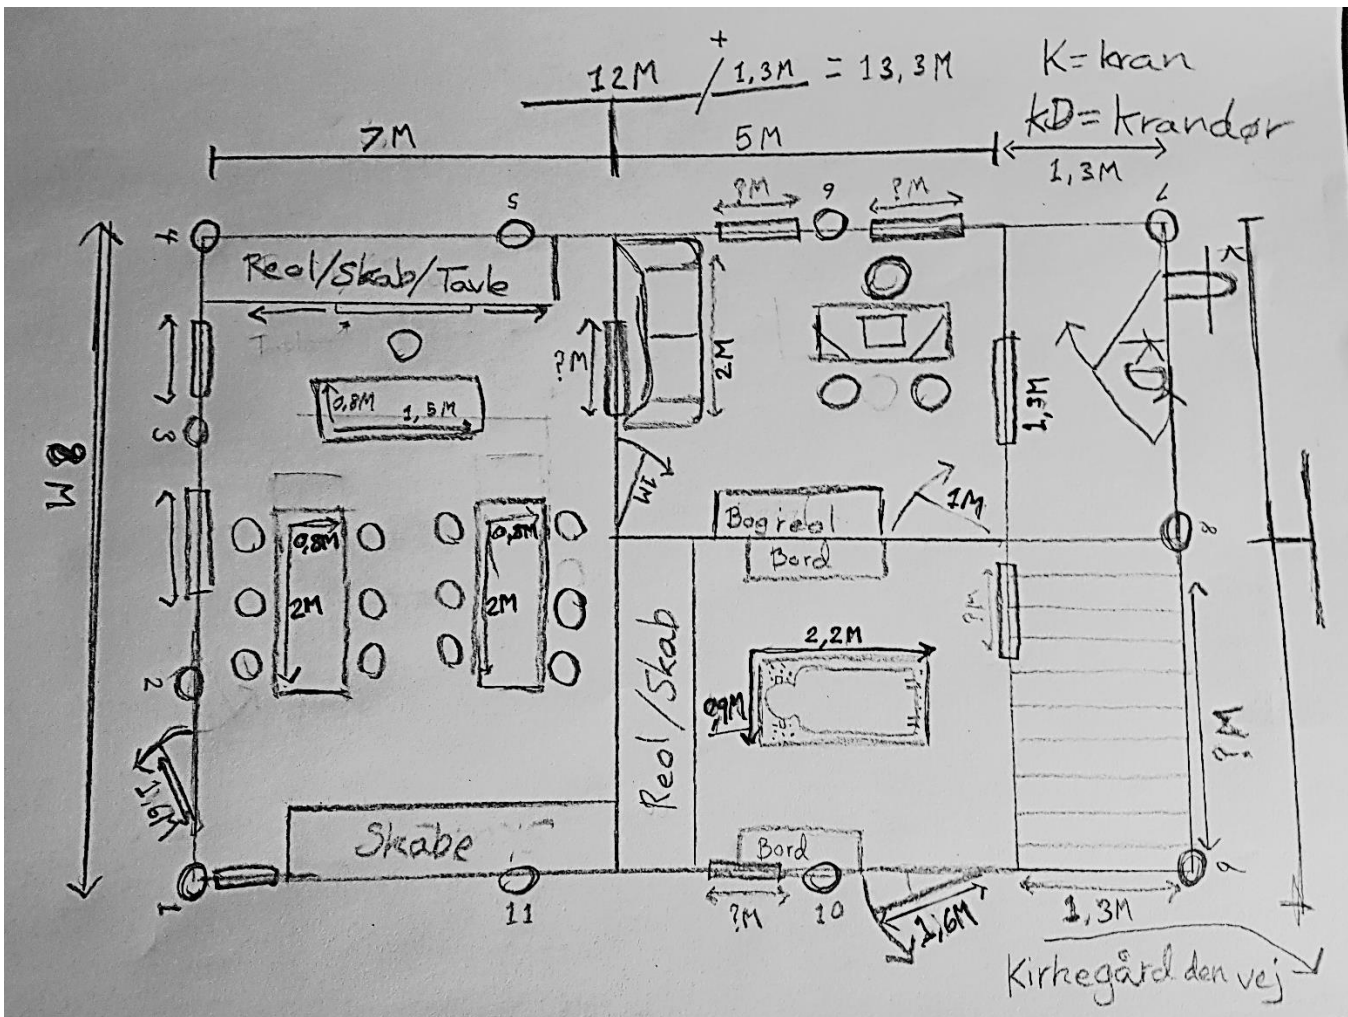 12M + / 1,3M = 13,3M
K=kran
kD=krandør
7M
5M
1,3M
?M
?M
4
5
6
7
Reol/Skab/Tavle
K
0,8M
1,5M
?M
2M
1,3M
KD
3
8M
1M
1M
Bogreol
Bord
8
0,8M
0,8M
2M
2M
?M
Reol/Skab
2,2M
0,9M
2
?M
1,6M
Skabe
Bord
1
11
?M
10
1,6M
1,3M
9
Kirkegård den vej